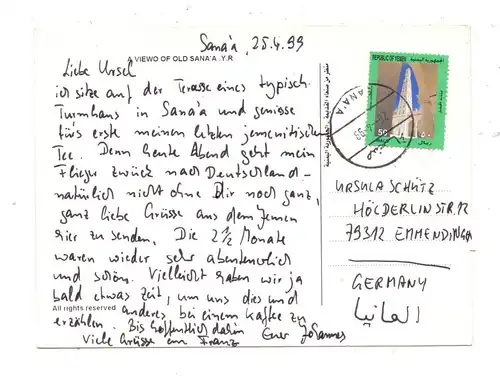 Sana'a, 25.4.99
A VIEWO OF OLD SANA'A .Y.R
Liebe Ursel
ich sitze auf der Terasse eines typisch
Turmhaus in Sana'a und geniesse
fürs erste meinen letzten jemenitischen
Tee. Denn heute Abend geht mein
Flieger zurück nach Deutschland-
natürlich nicht ohne Dir noch ganz,
ganz liebe Grüsse aus dem Jemen
hier zu senden. Die 2 1/2 Monate
waren wieder sehr abenteuerlich
und schön. Vielleicht haben wir ja
bald etwas Zeit, um uns dies und
All rights reserved
anderes bei einem Kaffee zu
erzählen. Bis hoffentlich dahin Euer Johannes
Viele Grüsse an Franz
REPUBLIC OF YEMEN
الجمهورية اليمنية
50
٥٠
ريال
SANA'A
URSULA SCHÜTZ
HÖLDERLINSTR. 12
79312 EMMENDINGEN
GERMANY
المانيا